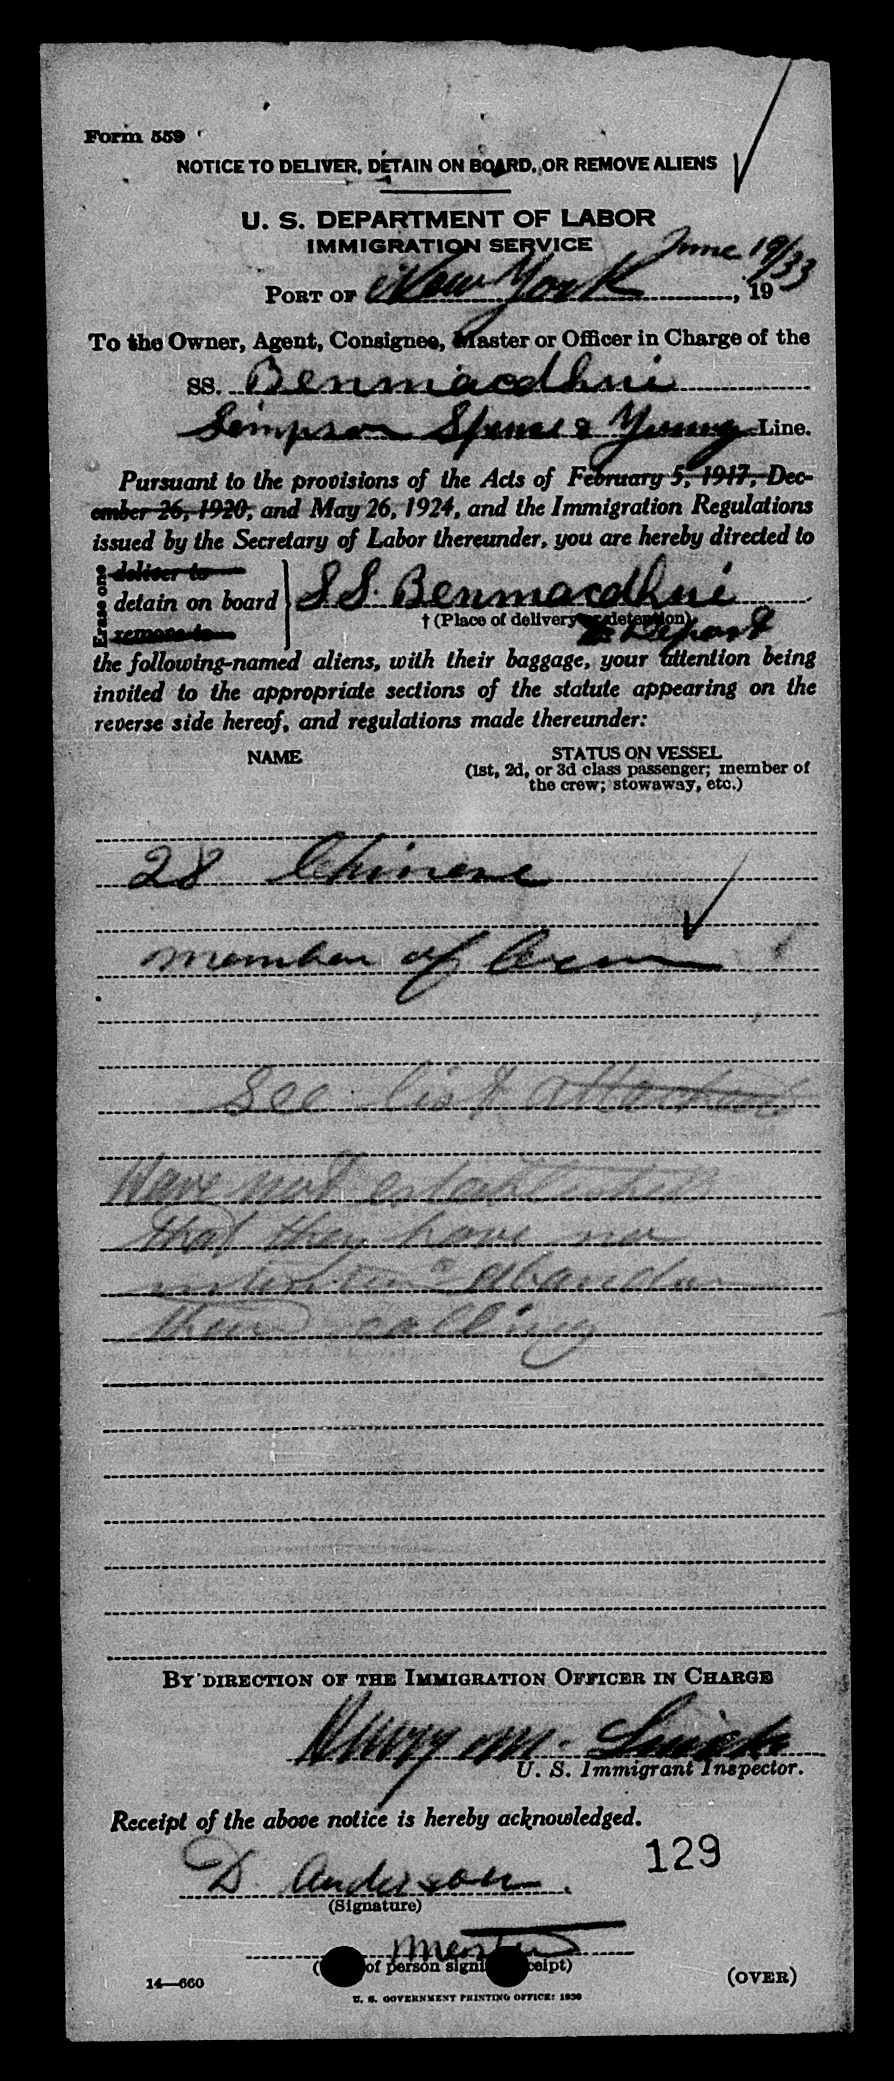 Form 559
NOTICE TO DELIVER, DETAIN ON BOARD, OR REMOVE ALIENS
U. S. DEPARTMENT OF LABOR
IMMIGRATION SERVICE
June 19/33
PORT OF New York, 19
To the Owner, Agent, Consignee, Master or Officer in Charge of the
SS. Benmacdhui
Simpson Spence & Young Line.
Pursuant to the provisions of the Acts of February 5, 1917, Dec-
ember 26, 1920, and May 26, 1924, and the Immigration Regulations
issued by the Secretary of Labor thereunder, you are hereby directed to
Erase one
deliver to
detain on board
remove to
SS. Benmacdhui
† (Place of delivery or detention)
& Deport
the following-named aliens, with their baggage, your attention being
invited to the appropriate sections of the statute appearing on the
reverse side hereof, and regulations made thereunder:
NAME
STATUS ON VESSEL
(1st, 2d, or 3d class passenger; member of
the crew; stowaway, etc.)
28 Chinese
member of Crew
See list attached
Have not established
that they have no
intention abandon
their calling
BY DIRECTION OF THE IMMIGRATION OFFICER IN CHARGE
M.
U. S. Immigrant Inspector.
Receipt of the above notice is hereby acknowledged.
D. Anderson
129
(Signature)
Master
( of person signi ceipt)
14—660
(OVER)
U. S. GOVERNMENT PRINTING OFFICE: 1930